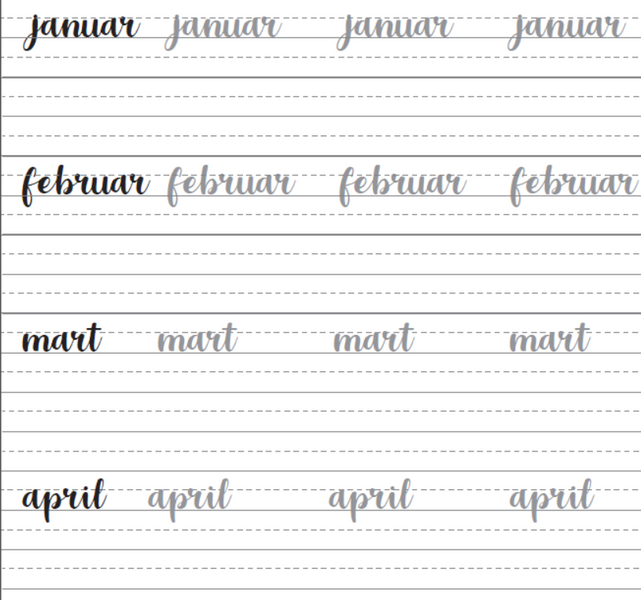 januar januar januar januar
februar februar februar februar
mart mart mart mart
april april april april